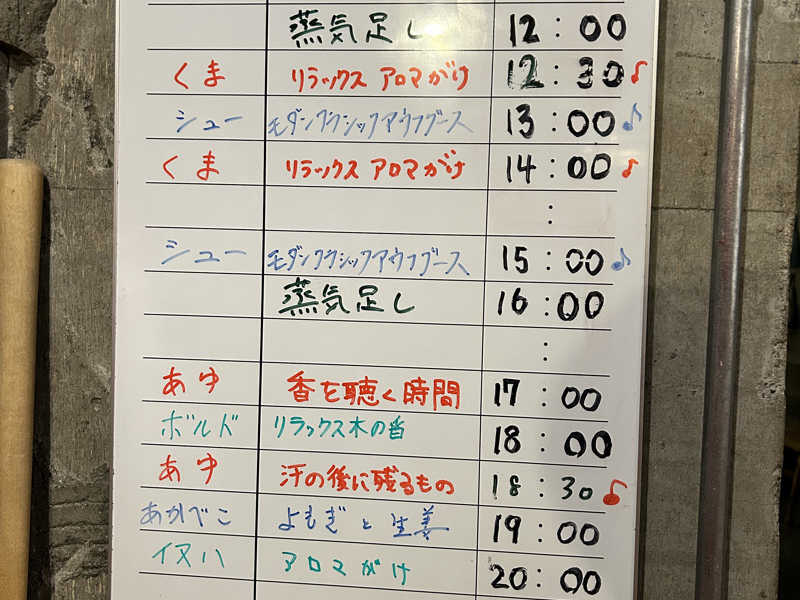 蒸気足し 12:00
くま リラックス アロマがけ 12:30♪
シュー モダンクラシックアウフグース 13:00♪
くま リラックス アロマがけ 14:00♪
:
シュー モダンクラシックアウフグース 15:00♪
蒸気足し 16:00
:
あゆ 香を聴く時間 17:00
ボルド リラックス木の香 18:00
あゆ 汗の後に残るもの 18:30♪
あかべこ よもぎと生姜 19:00
イヌハ アロマがけ 20:00